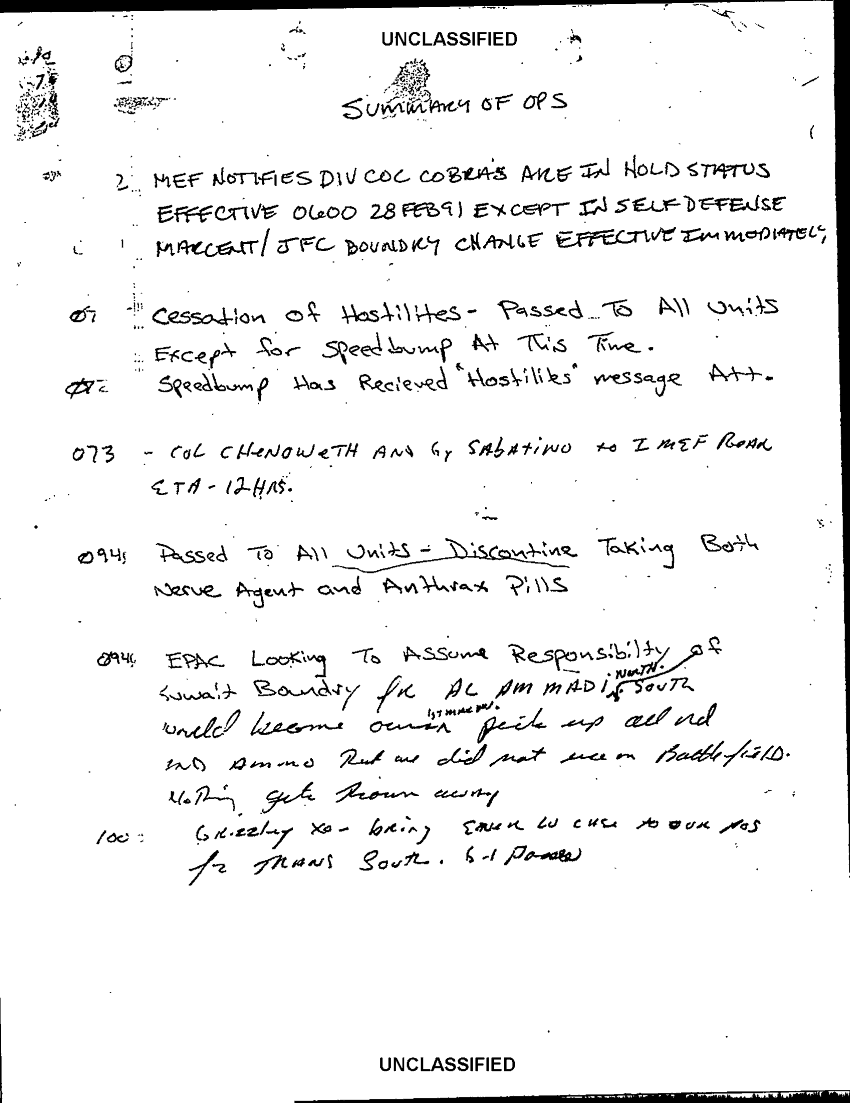 UNCLASSIFIED
SUMMARY OF OPS
2 MEF NOTIFIES DIV COC COBRA'S ARE IN HOLD STATUS
EFFECTIVE 0600 28 FEB 91 EXCEPT IN SELF DEFENSE
MARCENT/JFC BOUNDRY CHANGE EFFECTIVE IMMEDIATELY
07 Cessation of Hostilites - Passed To All Units
Except for Speedbump At This Time.
Speedbump Has Recieved "Hostilites" message Att.
073 - COL CHENOWETH AND Gy SABATINO to I MEF REAR
ETA - 12 HRS.
094 Passed To All Units - Discontine Taking Both
Nerve Agent and Anthrax Pills
094 EPAC Looking To Assume Responsibilty of
Kuwait Boundry AL AMMADI NORTH. SOUTH
would become 1ST MAR DIV. pick up all
AMMO that we did not use on Battlefield.
Nothing gets thrown away
100 Grizzley XO - bring to our pos
for TRANS South.
UNCLASSIFIED